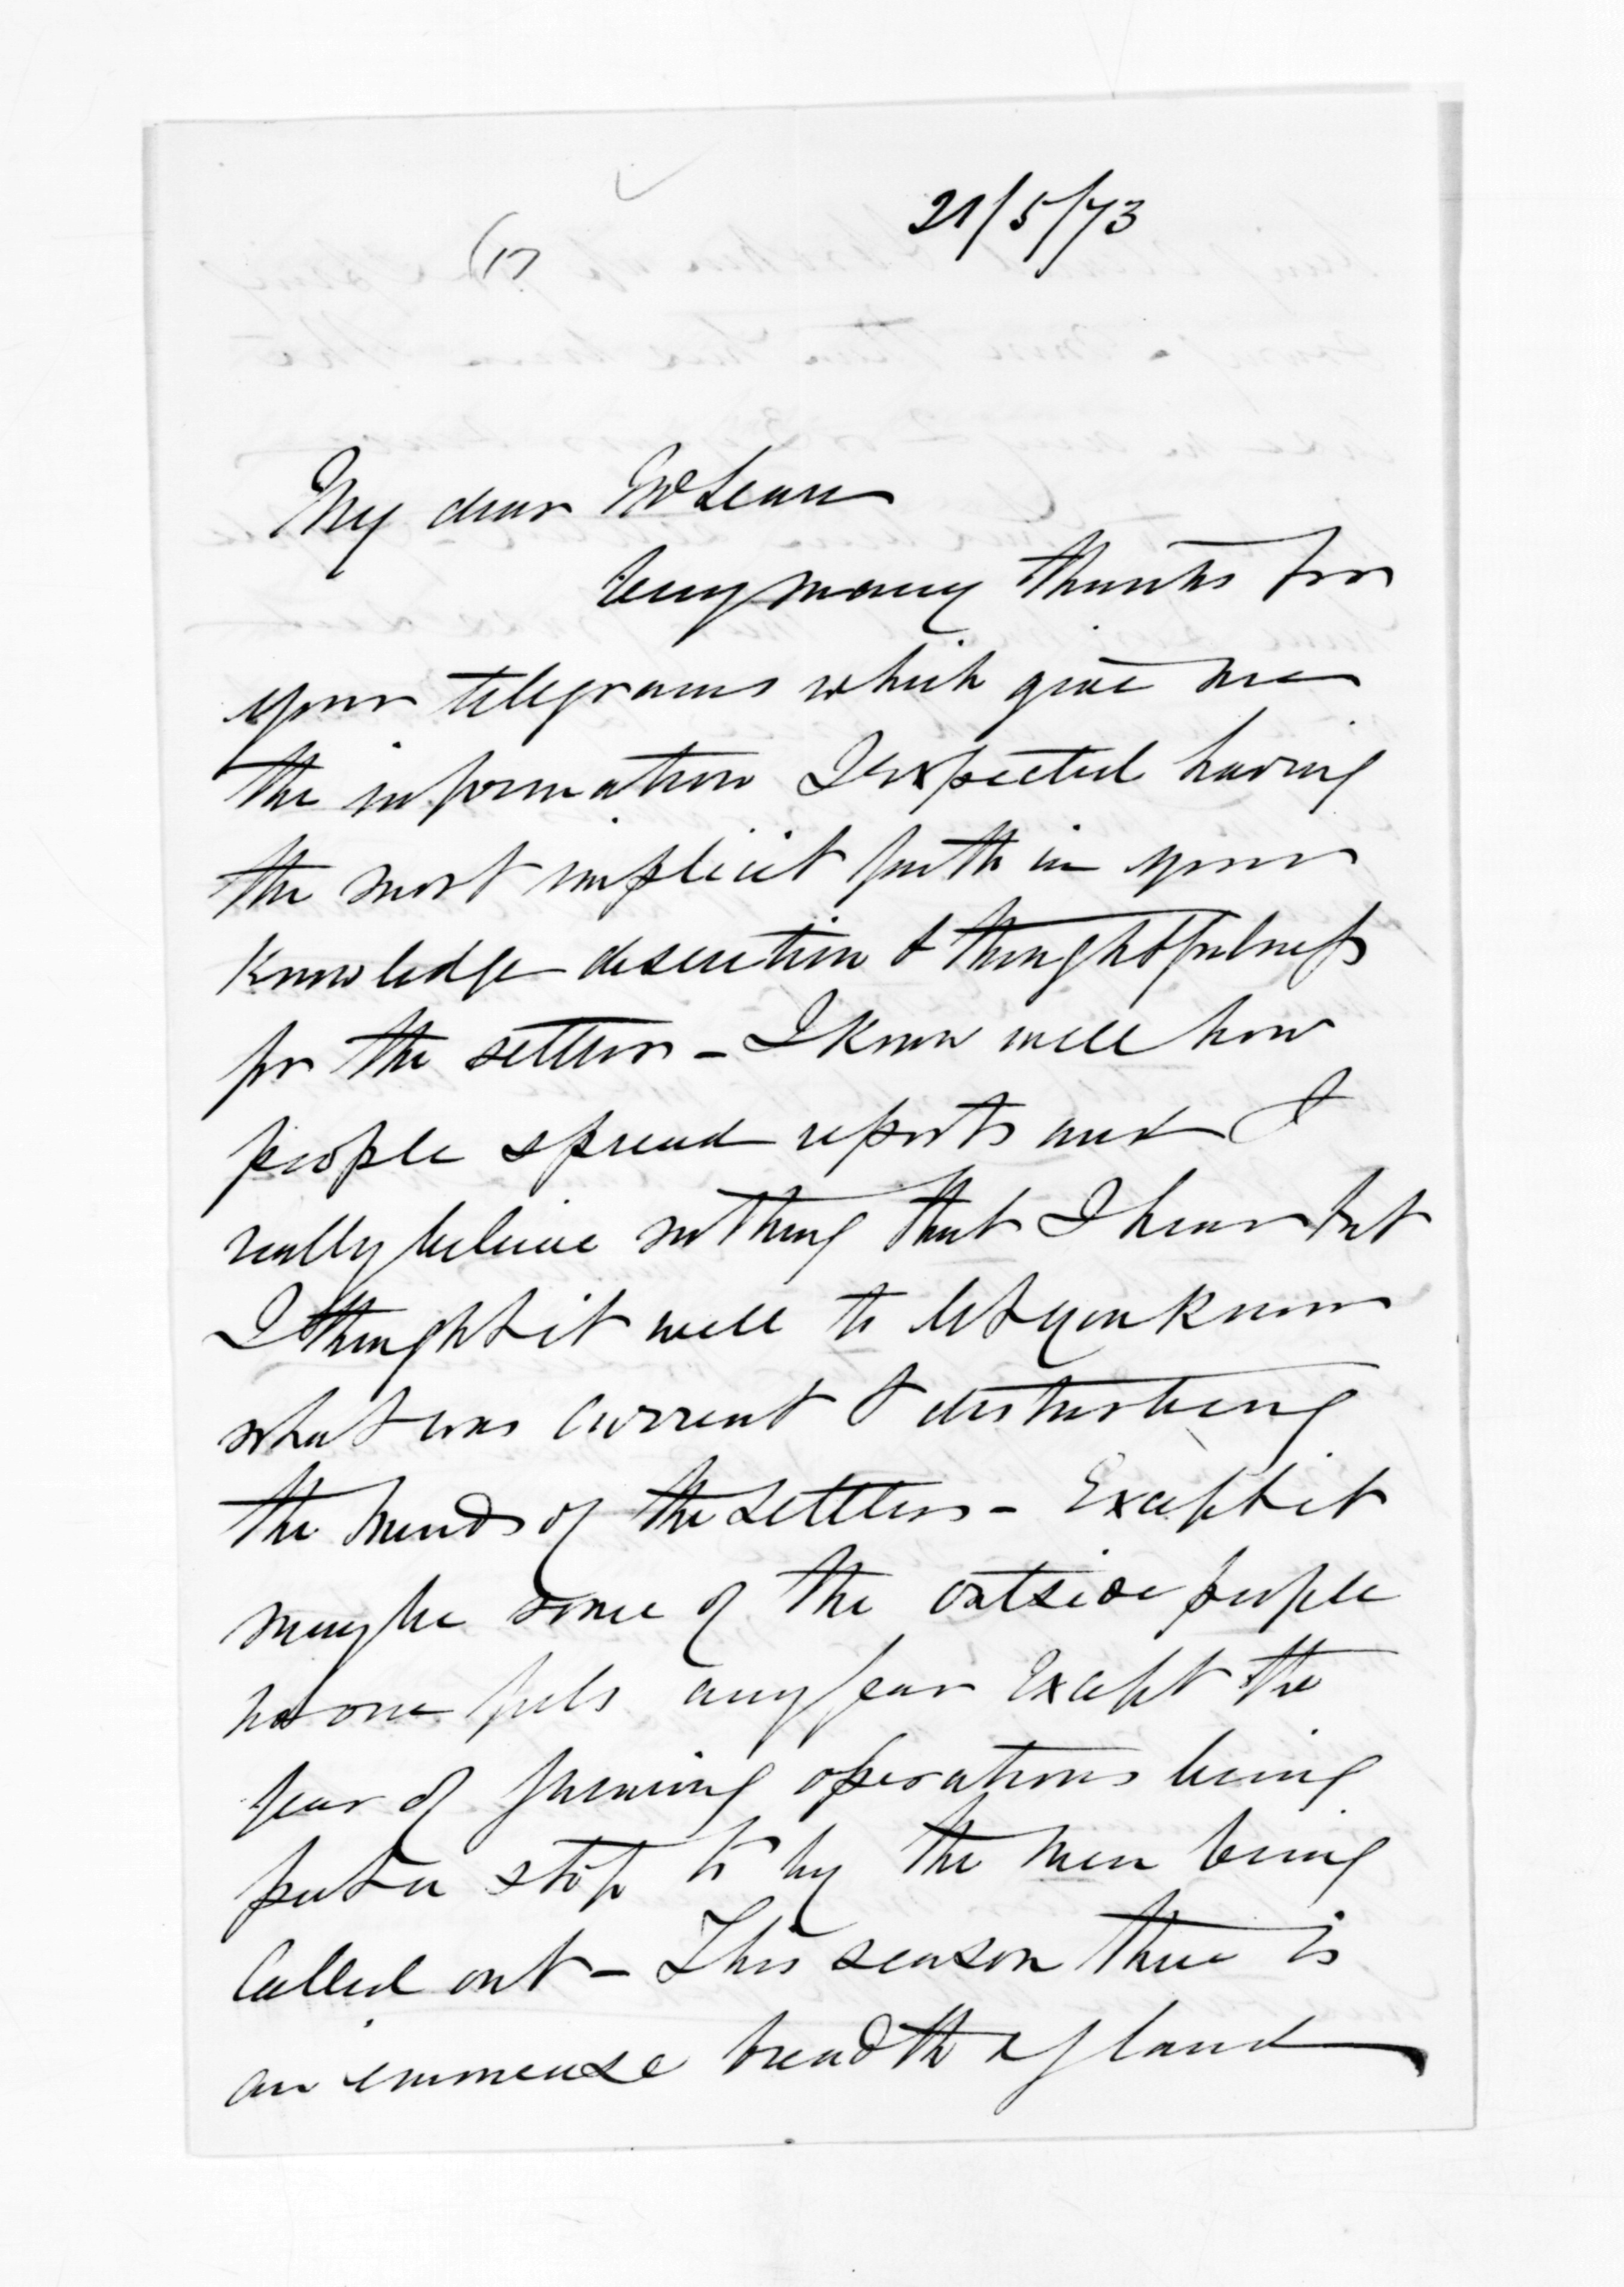 21/5/73
(17
My dear McLean
Very many thanks for
your telegrams which give me
the information I expected having
the most implicit faith in your
knowledge discretion & thoughtfulness
for the settlers - I know well how
people spread reports and I
really believe nothing that I hear but
I thought it well to let you know
what was current & disturbing
the minds of the settlers - Except it
may be some of the outside people
no one feels any fear except the
fear of farming operations being
put a stop to by the men being
called out - This season there is
an immense breadth of land